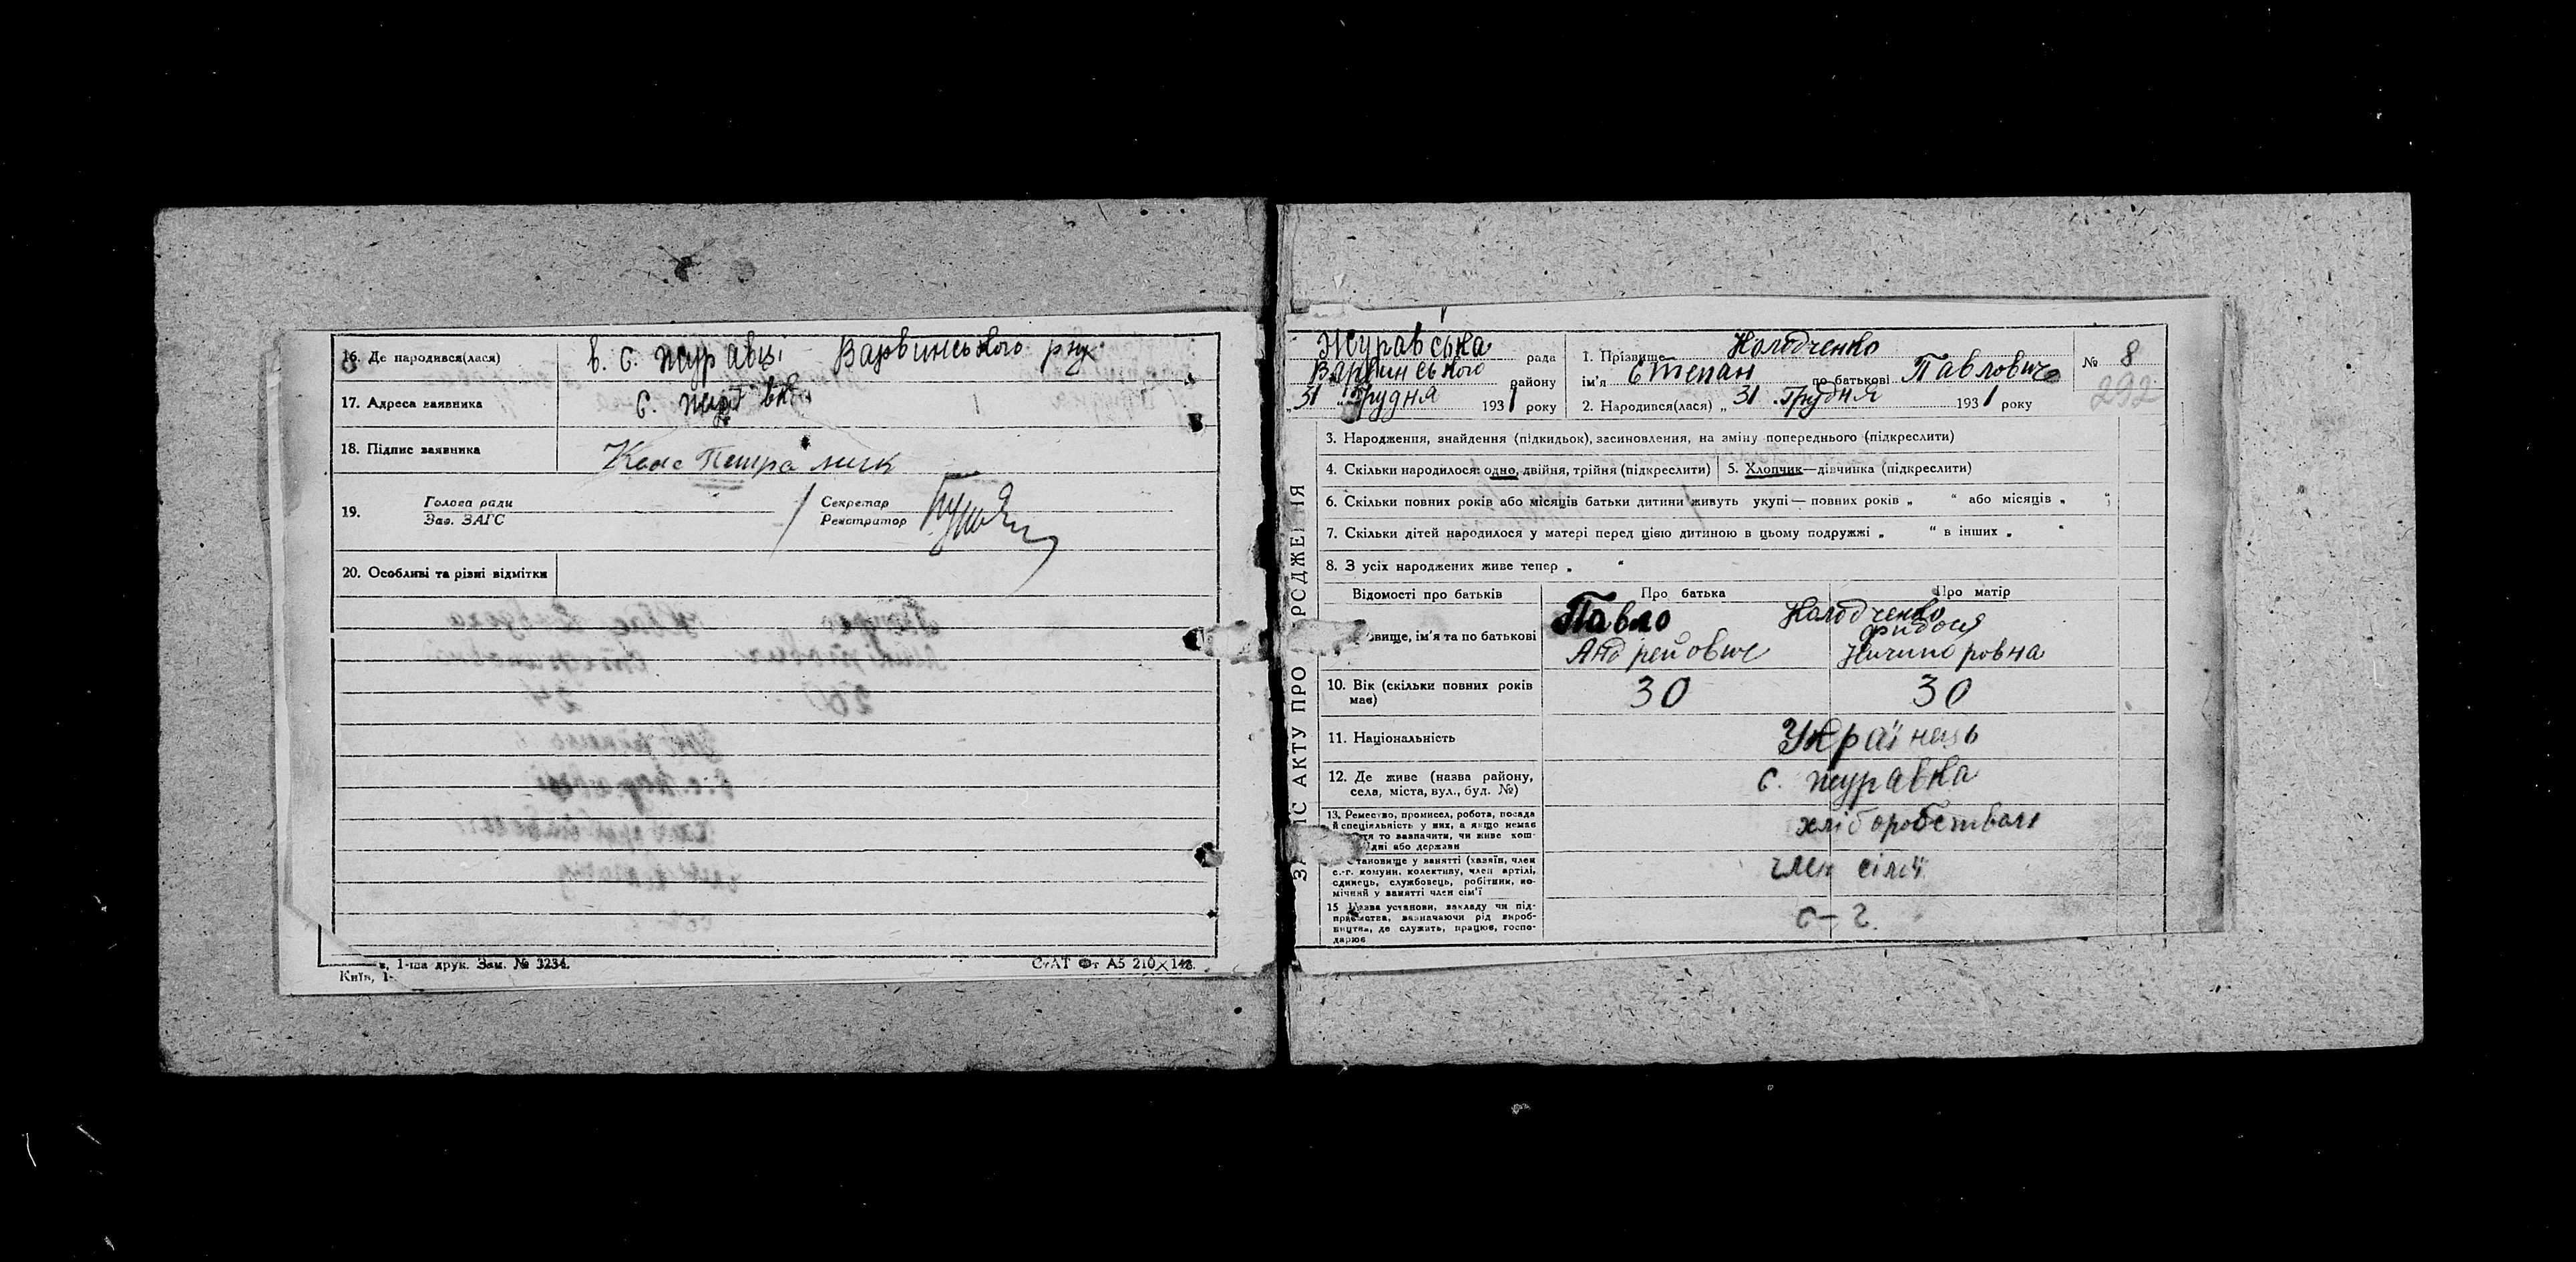 16. Де народився(лася) в. с. Журавці Варвинського р-ну
17. Адреса заявника с. Журавка
18. Підпис заявника Петра
19. Голова ради
Зав. ЗАГС
Секретар
Реєстратор
20. Особливі та різні відмітки
1-ша друк. Зам. № 3234.
Київ, 1-
СтАТ Фт А5 210×148.
ЗАПИС АКТУ ПРО НАРОДЖЕННЯ
Журавська рада
Варвинського району
„31 „ Грудня 1931 року
1. Прізвище Колодченко
ім'я Степан по батькові Павлович
2. Народився(лася) „ 31 „ Грудня 1931 року
№ 8
292
3. Народження, знайдення (підкидьок), засиновлення, на зміну попереднього (підкреслити)
4. Скільки народилося: одно, двійня, трійня (підкреслити) 5. Хлопчик—дівчинка (підкреслити)
6. Скільки повних років або місяців батьки дитини живуть укупі — повних років „ “ або місяців „ “;
7. Скільки дітей народилося у матері перед цією дитиною в цьому подружжі „ “ в інших „ “
8. З усіх народжених живе тепер „ “
Відомості про батьків Про батька Про матір
звище, ім'я та по батькові Павло Колодченко Фидося
Андрейович Ничипоровна
10. Вік (скільки повних років має) 30 30
11. Національність Українець
12. Де живе (назва району,
села, міста, вул., буд. №) с. Журавка
13. Ремество, промисел, робота, посада
й спеціяльність у них, а якщо немає
то зазначити, чи живе кош-
дні або держави
хліборобством
Становище у занятті (хазяїн, член
с.-г. комуни, колективу, член артілі,
одинець, службовець, робітник, по-
мічний у занятті член сім'ї
член сім'ї
15 Назва установи, закладу чи під-
приємства, зазначаючи рід вироб-
ництва, де служить, працює, госпо-
дарює
с-г.